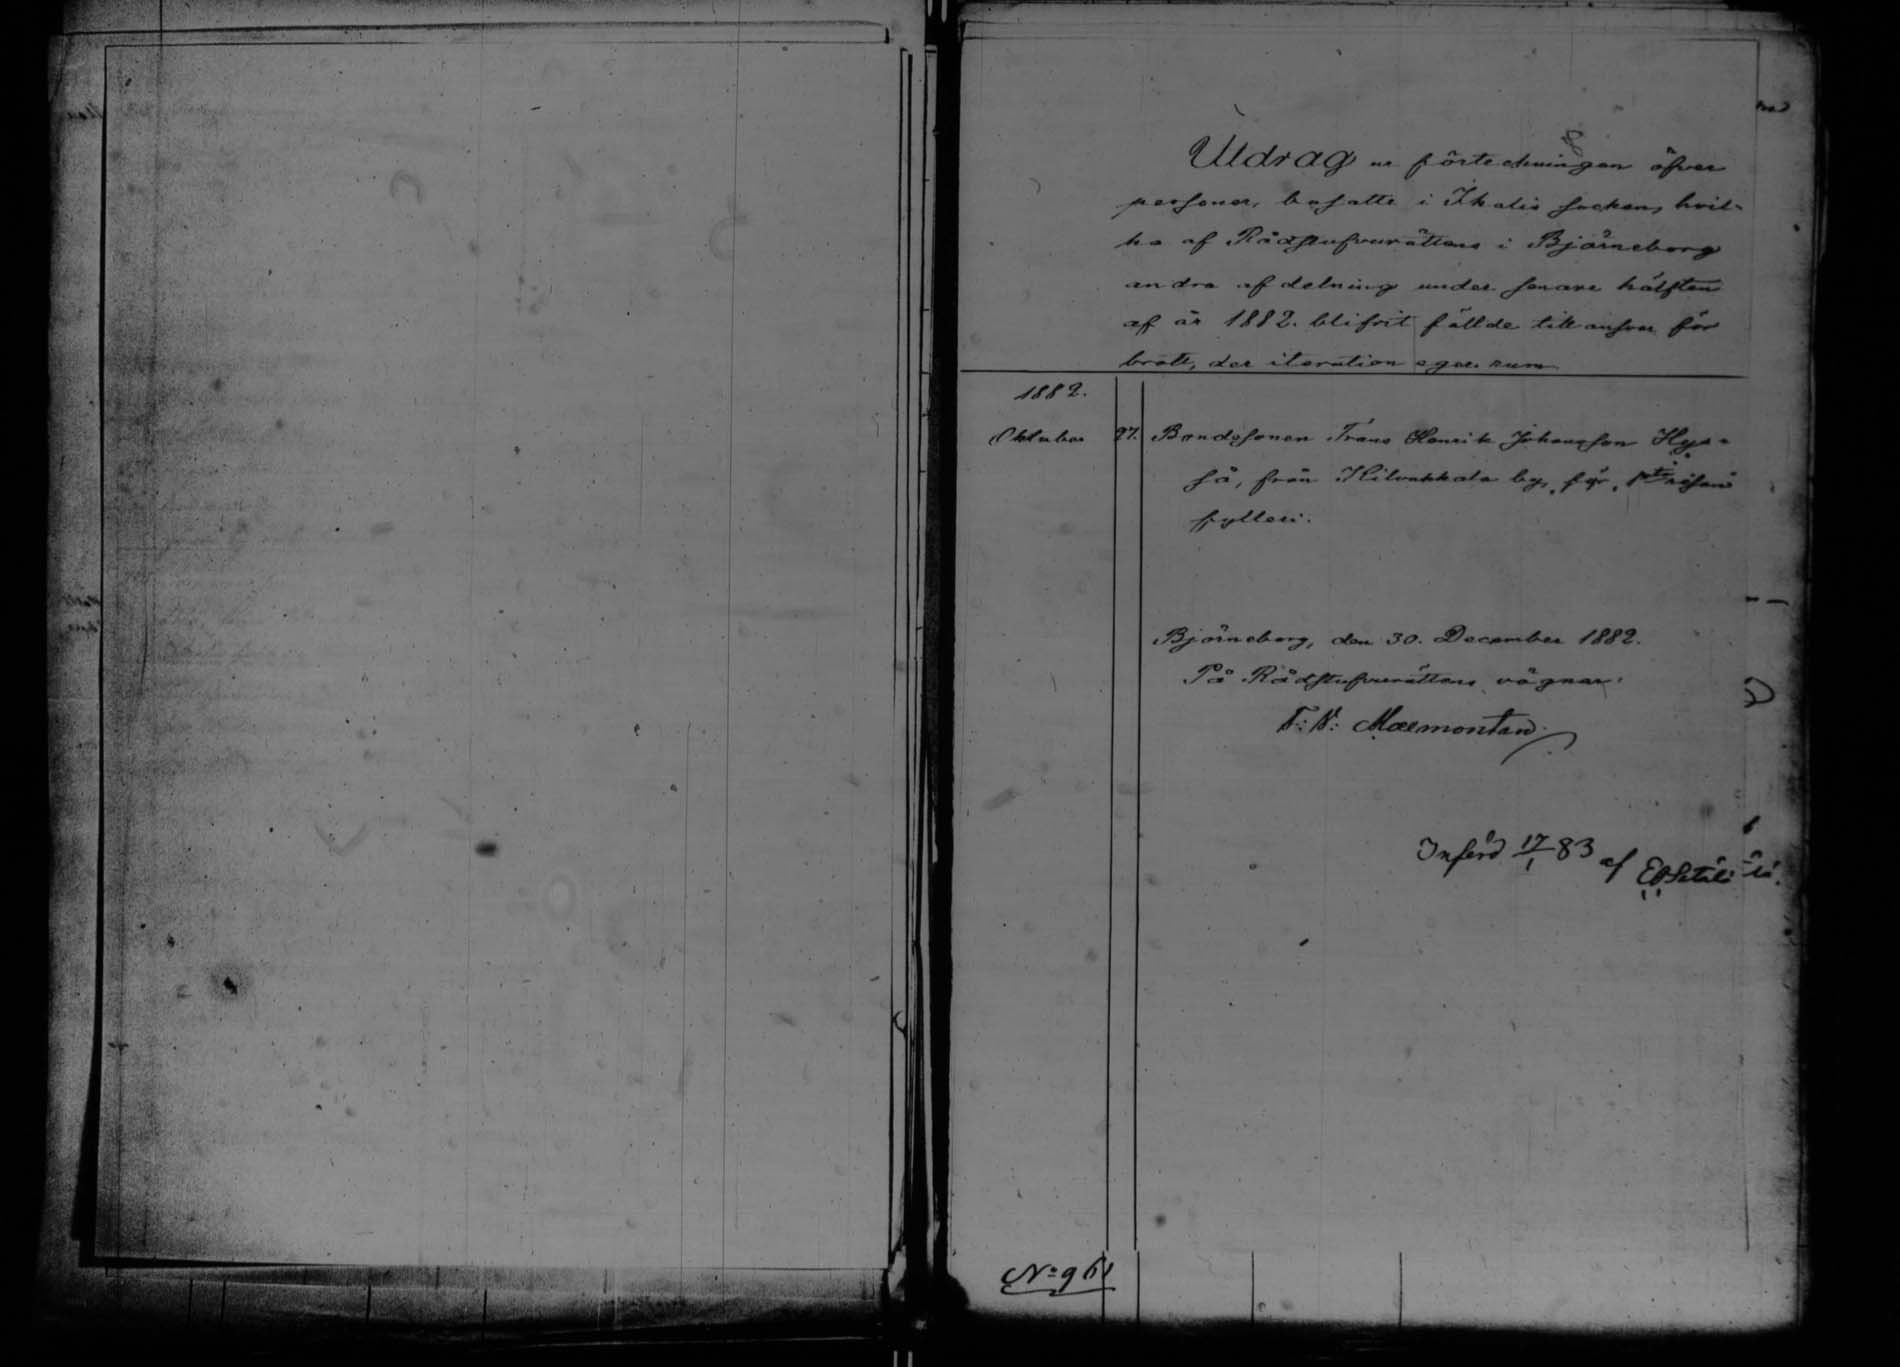 Utdrag ur förteckningen öfver
personer, bosatte i Ikalis socken, hvil-
ka af Rådstufvurättens i Björneborg
andra afdelning under senare hälften
af år 1882. blifvit fällde till ansvar för
brott, der iteration eger rum.
1882.
Oktober 27. Bondesonen Frans Henrik Johansson Hys-
sä, från Kilvakkala by, för, 1sta resan
fylleri.
Björneborg, den 30. December 1882.
På Rådstufvurättens vägnar:
Införd 17/1 83 af
No 961